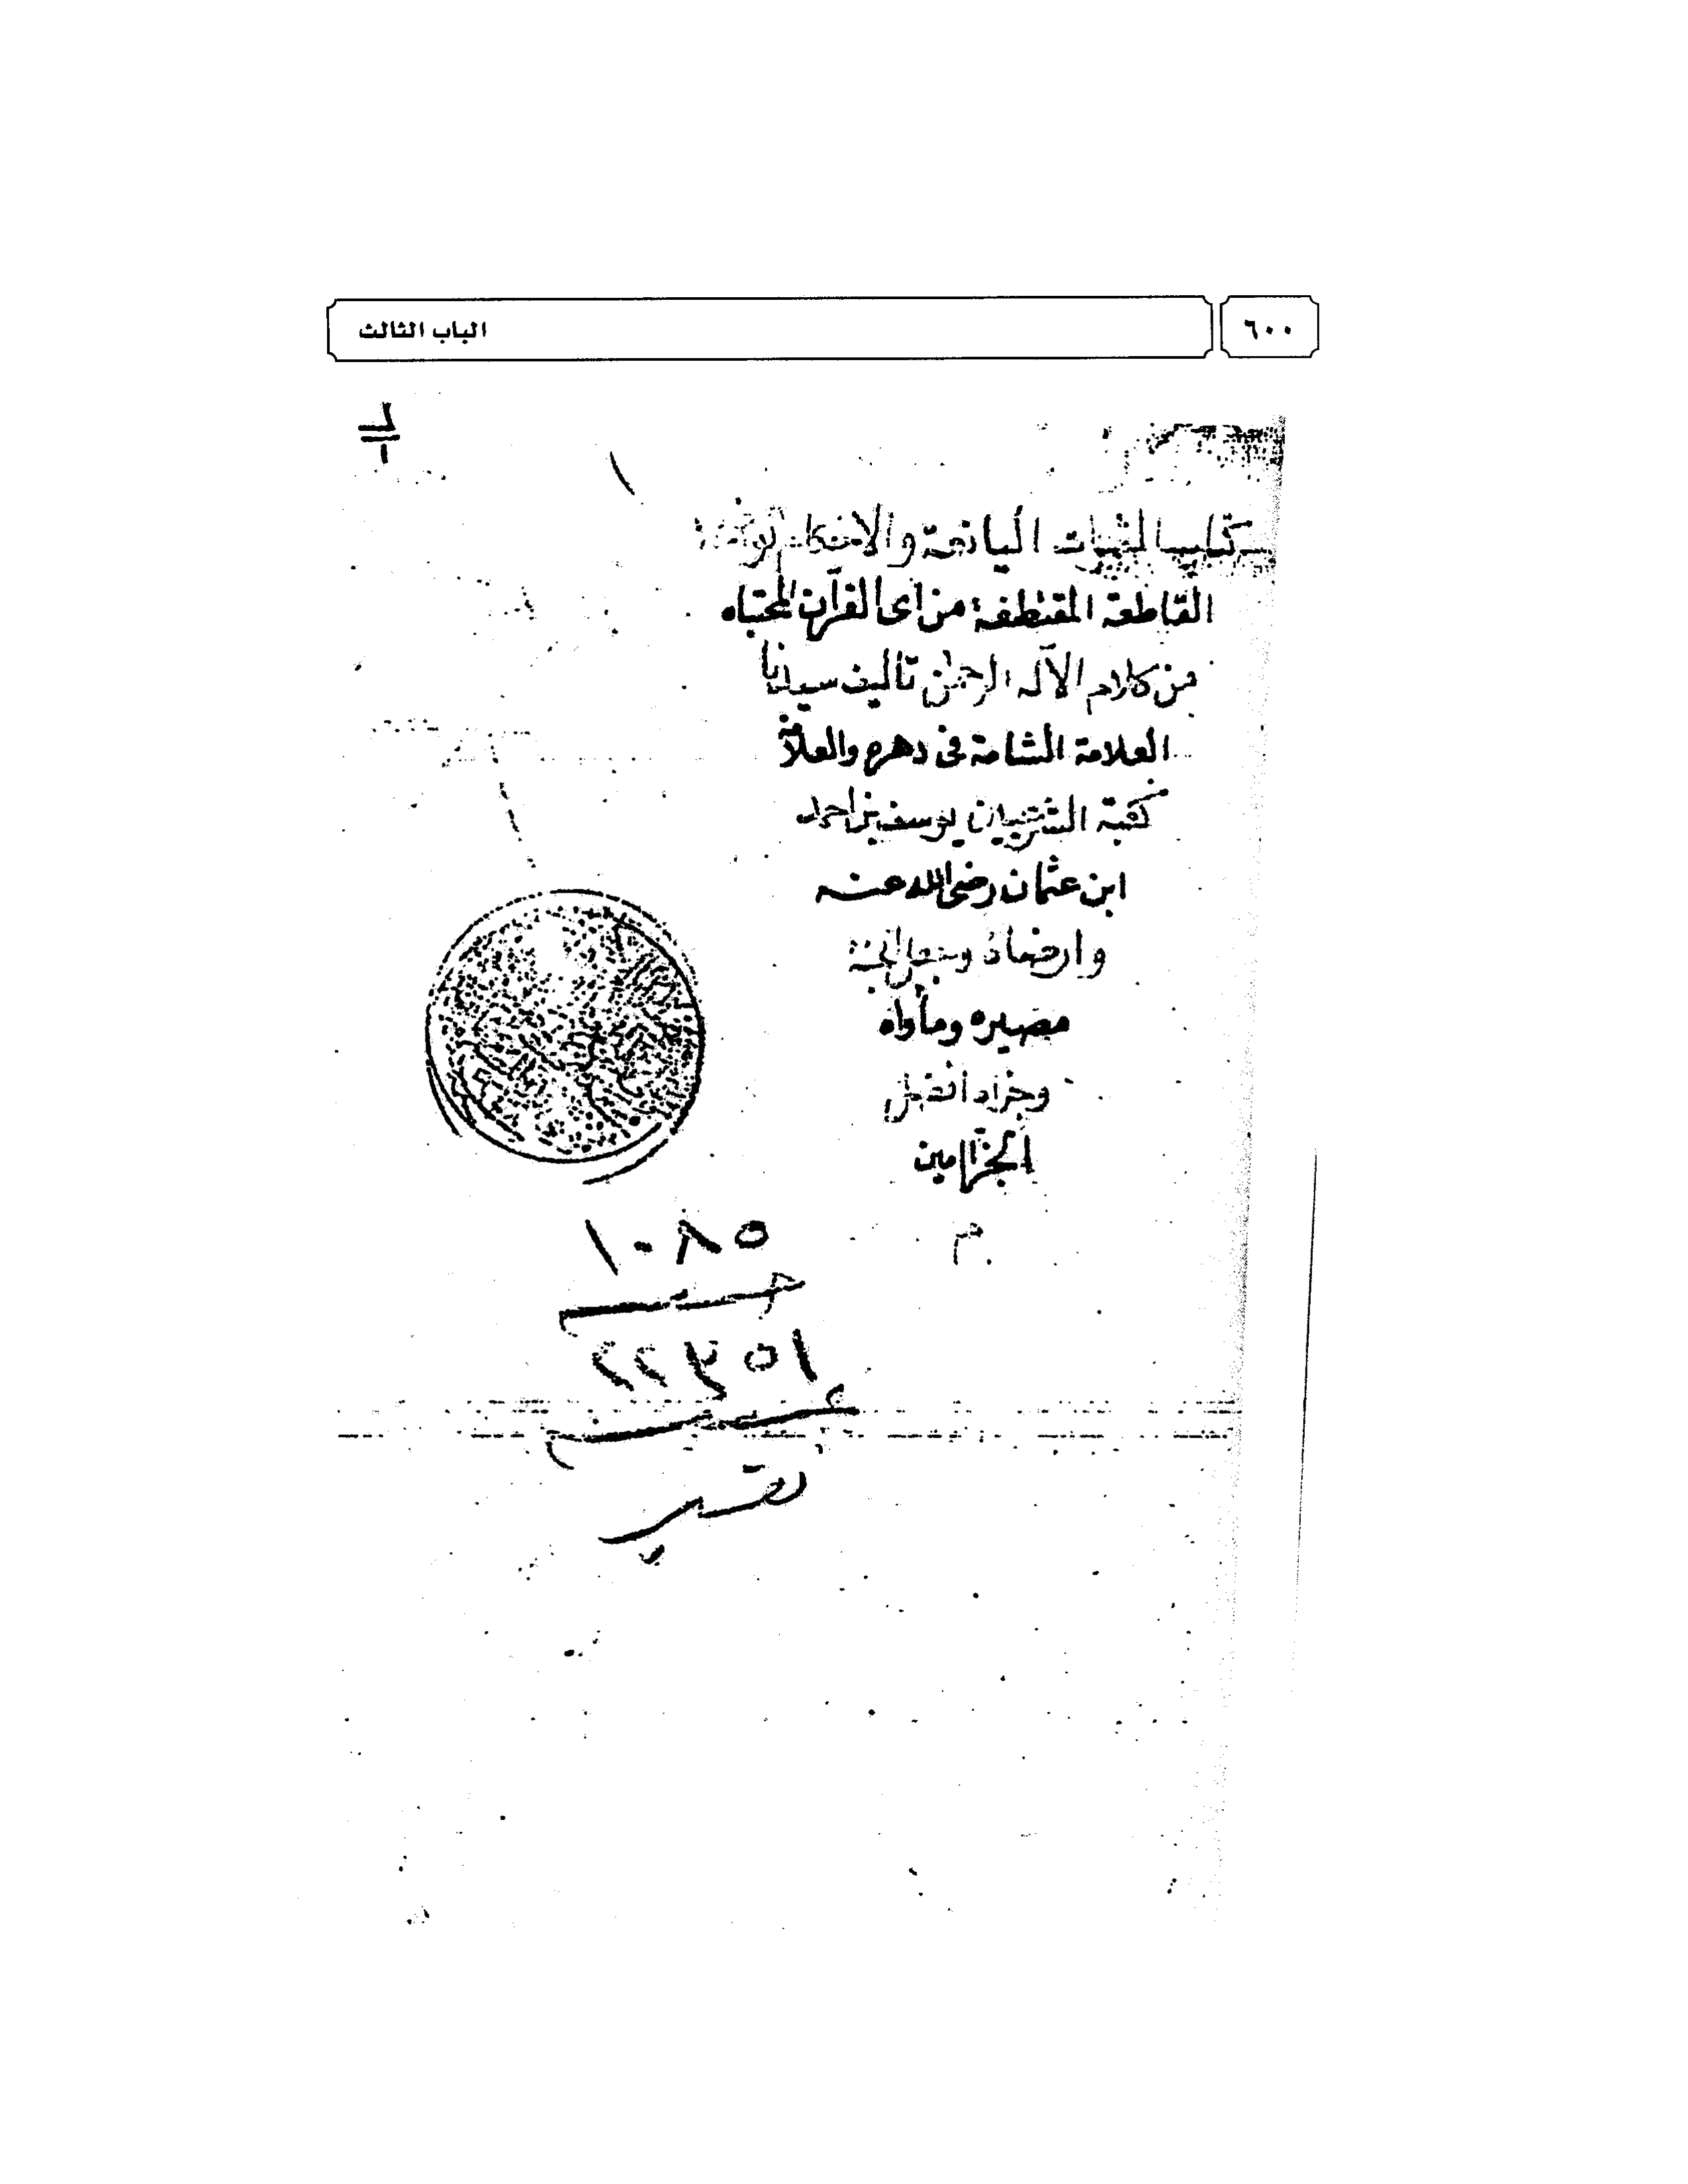 ٦٠٠
الباب الثالث
كتاب الثمرات اليانعة والاحكام
القاطعة المقتطفة من اى القرآن المجتباه
من كلام الاله الرحمن تاليف سيدنا
العلامة الشامة فى دهره والعلامة
يوسف بن احمد
ابن عثمان رضى الله عنه
وارضاه وجعل الجنة
مصيره ومأواه
وجزاه افضل
الجزا امين
م
١٠٨٥
٢٢٣٥١
تفسير